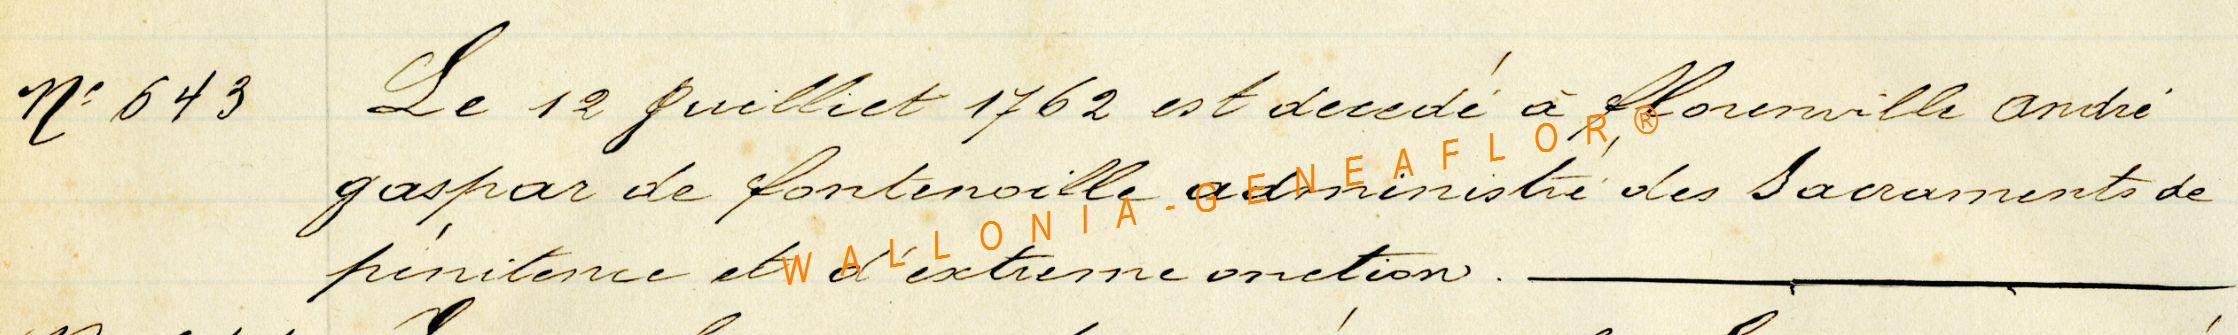 N° 643 Le 12 Juilliet 1762 est decedé à fflorenville andré
gaspar de fontenoille administré des Sacraments de
pénitence et d'extreme onction.
WALLONIA-GENEAFLOR®